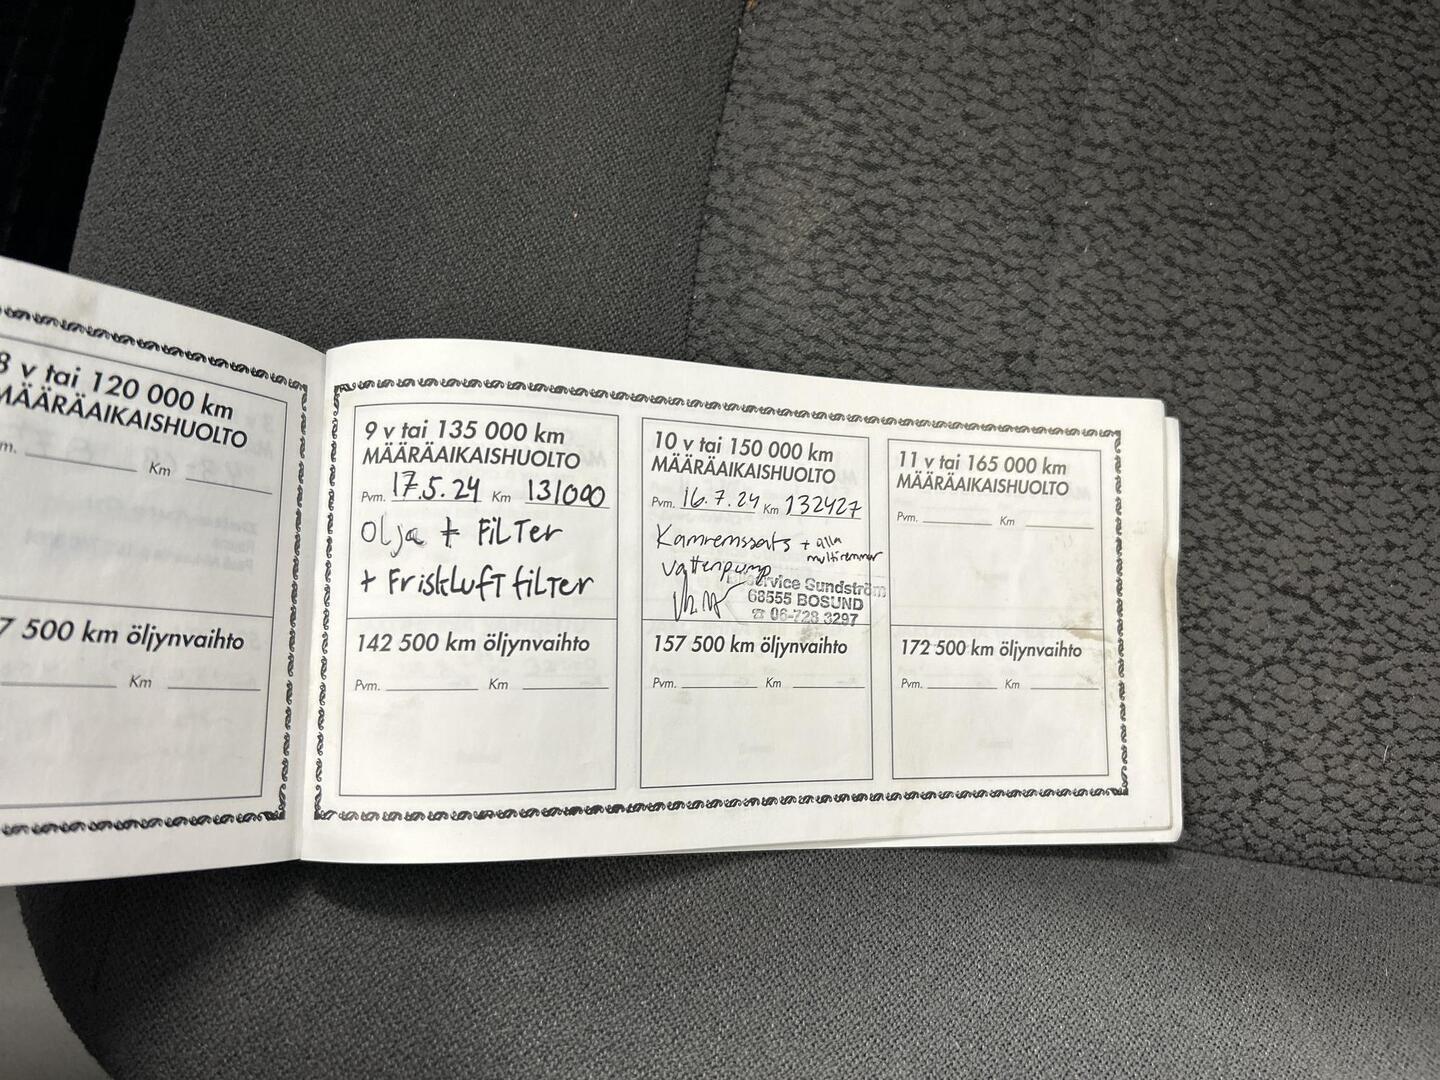 8 v tai 120 000 km
MÄÄRÄAIKAISHUOLTO
Km
7 500 km öljynvaihto
Km
9 v tai 135 000 km
MÄÄRÄAIKAISHUOLTO
Pvm. 17.5.24 Km 131000
Olja + FiLTer
+ FrisKLuFT filTer
142 500 km öljynvaihto
Pvm. Km
10 v tai 150 000 km
MÄÄRÄAIKAISHUOLTO
Pvm. 16.7.24 Km 132427
Kamremssats + alla
multiremmar
Vattenpump
Service Sundström
68555 BOSUND
☎ 06-728 3297
157 500 km öljynvaihto
Pvm. Km
11 v tai 165 000 km
MÄÄRÄAIKAISHUOLTO
Pvm. Km
172 500 km öljynvaihto
Pvm. Km